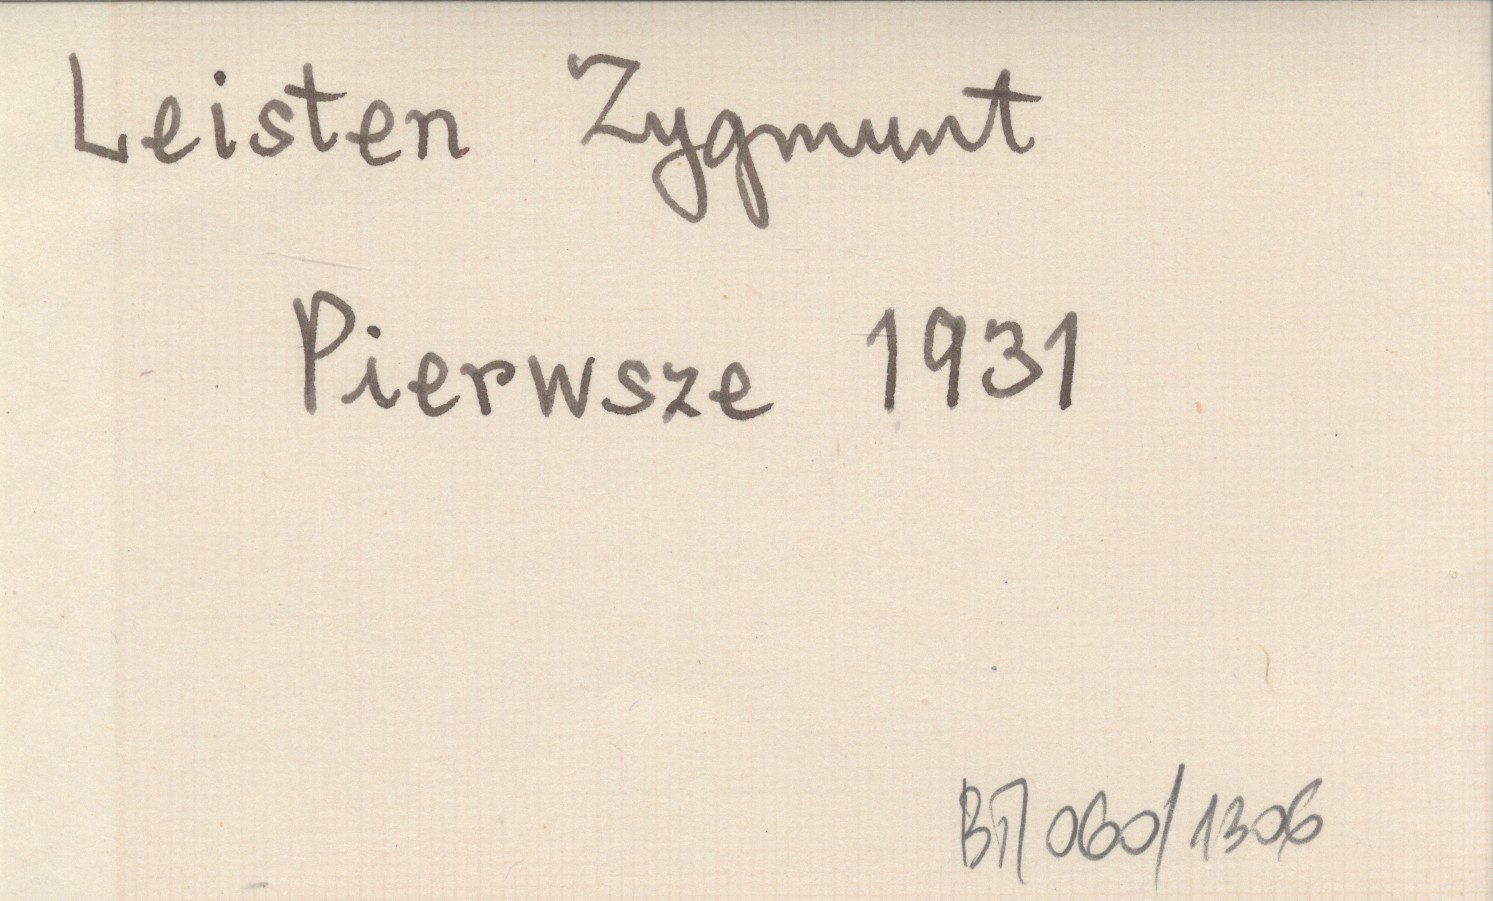 Leisten Zygmunt
Pierwsze 1931
060/1306